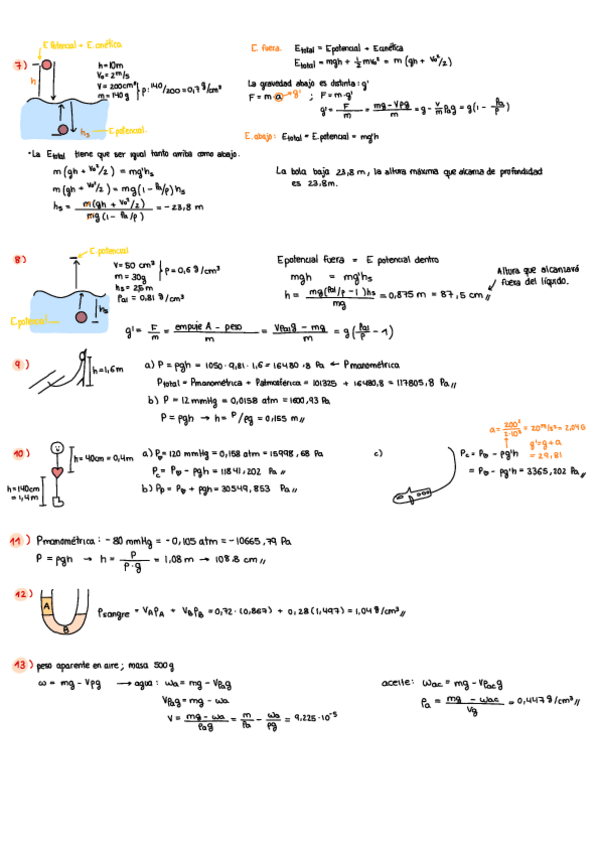 E. Potencial + E. cinética
7)
h
h=10m
V₀= 2m/s
V= 200cm³
m= 140g
ρ: 140/200 = 0,7 g/cm³
hs
E.potencial.
E. fuera. Etotal = Epotencial + Ecinética
Etotal = mgh + 1/2 mv₀² = m (gh + v₀²/2)
La gravedad abajo es distinta: g'
F = m·a → g' ; F = m·g'
g' = F/m = mg - Vρg/m = g - V/m ρag = g(1 - ρa/ρ)
E. abajo: Etotal = E.potencial = mg'h
· La Etotal tiene que ser igual tanto arriba como abajo.
m (gh + v₀²/2) = mg'hs
m (gh + v₀²/2) = mg(1 - ρa/ρ) hs
hs = m(gh + v₀²/2) / mg (1 - ρa/ρ) = - 23,8 m
La bola baja 23,8 m, la altura máxima que alcanza de profundidad
es 23,8m.
8)
E.potencial
V= 50 cm³
m= 30g
ρ= 0,6 g/cm³
hs = 2,5 m
ρal = 0,81 g/cm³
hs
E.potencial
Epotencial fuera = E potencial dentro
mgh = mg'hs
h = mg(ρal/ρ - 1)hs / mg = 0,875 m = 87,5 cm//
Altura que alcanzará
fuera del líquido.
g' = F/m = empuje A - peso / m = Vρalg - mg / m = g(ρal/ρ - 1)
9)
h=1,6m
a) P = ρgh = 1050 · 9,81 · 1,6 = 16480,8 Pa ← Pmanométrica
Ptotal = Pmanométrica + Patmosférica = 101325 + 16480,8 = 117805,8 Pa//
b) P = 12 mmHg = 0,0158 atm = 1600,93 Pa
P = ρgh → h = P/ρg = 0,155 m//
10)
h= 40cm = 0,4m
h=140cm
= 1,4m
a) P♥= 120 mmHg = 0,158 atm = 15998,68 Pa
Pc = P♥ - ρgh = 11841,202 Pa//
b) Pp = P♥ + ρgh = 30549,853 Pa//
c)
a = 200²/2·10³ = 20m/s² = 2,04G
g'=g+a
= 29,81
Pc = P♥ - ρg'h
= P♥ - ρg'h = 3365,202 Pa//
11) Pmanométrica: - 80 mmHg = - 0,105 atm = -10665,79 Pa
P = ρgh → h = P/ρ·g = 1,08 m → 108.8 cm//
12)
A
B
ρsangre = VAρA + VBρB = 0,72 · (0,867) + 0,28 (1,497) = 1,04 g/cm³//
13) peso aparente en aire; masa 500g
ω = mg - Vρg → agua: ωa = mg - Vρag
Vρag = mg - ωa
V = mg - ωa / ρag = m/ρa - ωa/ρg = 9,225·10⁻⁵
aceite: ωac = mg - Vρacg
ρa = mg - ωac / Vg = 0,447 g/cm³//